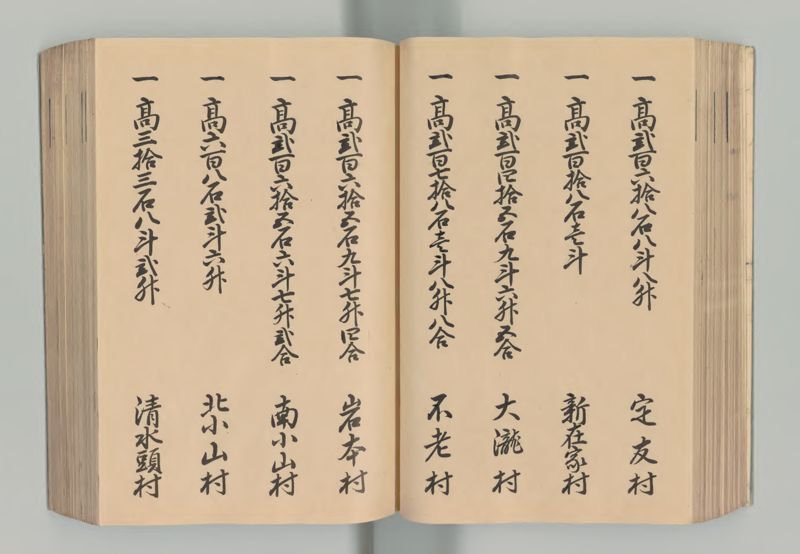 一 高弐百六拾八石八斗八升 定友村
一 高弐百拾八石壱斗 新在家村
一 高弐百四拾五石九斗六升五合 大瀧村
一 高弐百七拾八石壱斗八升八合 不老村
一 高弐百六拾五石九斗七升四合 岩本村
一 高弐百六拾五石六斗七升弐合 南小山村
一 高六百八石弐斗六升 北小山村
一 高三拾三石八斗弐升 清水頭村